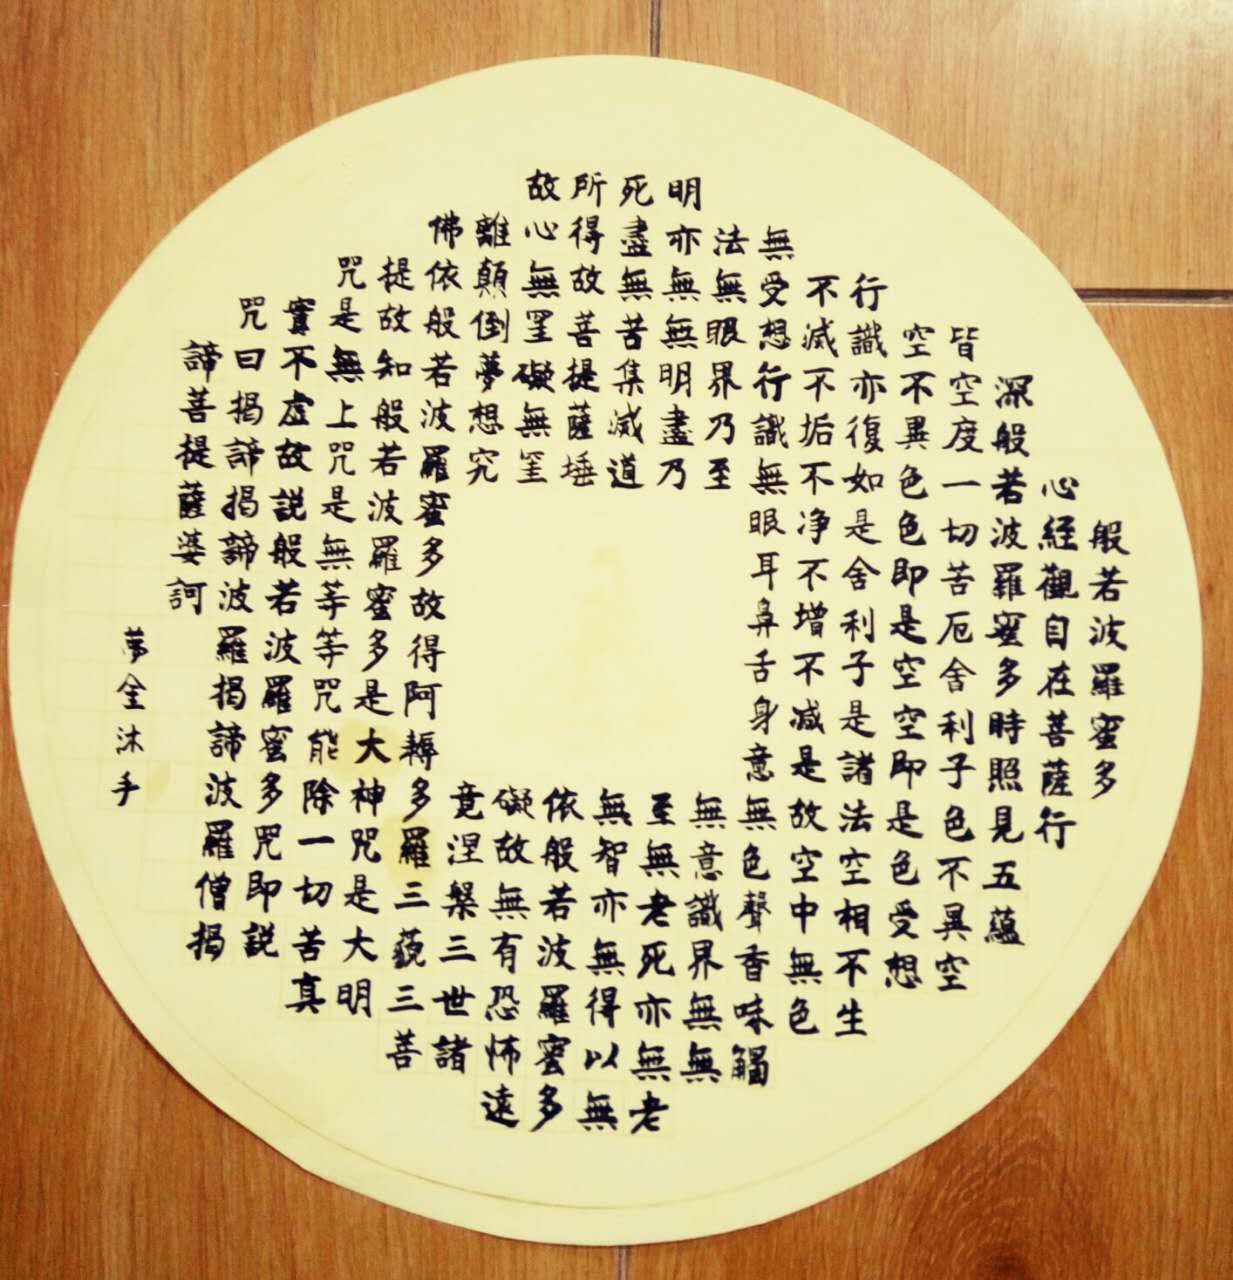 般若波羅蜜多
心經觀自在菩薩行
深般若波羅蜜多時照見五蘊
皆空度一切苦厄舍利子色不異空
空不異色色即是空空即是色受想
行識亦復如是舍利子是諸法空相不生
不滅不垢不净不增不减是故空中無色
無受想行識無眼耳鼻舌身意無色聲香味觸
法無眼界乃至無意識界無無
明亦無無明盡乃至無老死亦無老
死盡無苦集滅道無智亦無得以無
所得故菩提薩埵依般若波羅蜜多
故心無罣礙無罣礙故無有恐怖遠
離顛倒夢想究竟涅槃三世諸
佛依般若波羅蜜多故得阿耨多羅三藐三菩
提故知般若波羅蜜多是大神咒是大明
咒是無上咒是無等等咒能除一切苦真
實不虛故説般若波羅蜜多咒即説
咒曰揭諦揭諦波羅揭諦波羅僧揭
諦菩提薩婆訶
夢全沐手